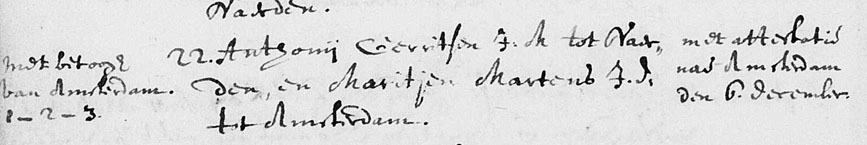 Naerden.
met betoogh
van Amsterdam.
1 – 2 – 3.
22. Anthonij Gerritsen J. M tot Naer-
den, en Maritjen Martens J. d.
tot Amsterdam.
met attestatie
naer Amsterdam
den 6. december.